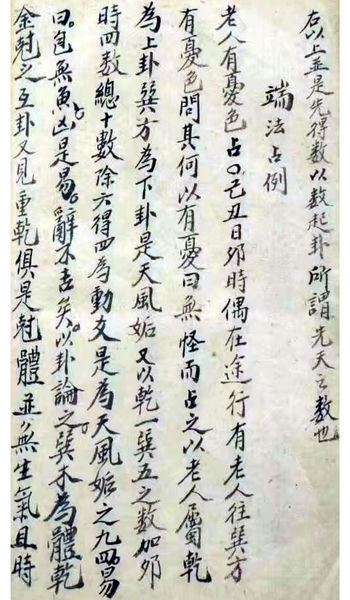 右以上並是先得數以數起卦所謂先天之數也
端法占例
老人有憂色占○己丑日卯時偶在途行有老人往巽方
有憂色問其何以有憂曰無怪而占之以老人屬乾
為上卦巽方為下卦是天風姤又以乾一巽五之數加卯
時四數總十數除六得四為動爻是為天風姤之九四易
曰包無魚凶是易辭不吉矣以卦論之巽木為體乾
金尅之互卦又見重乾俱是尅體並無生氣且時